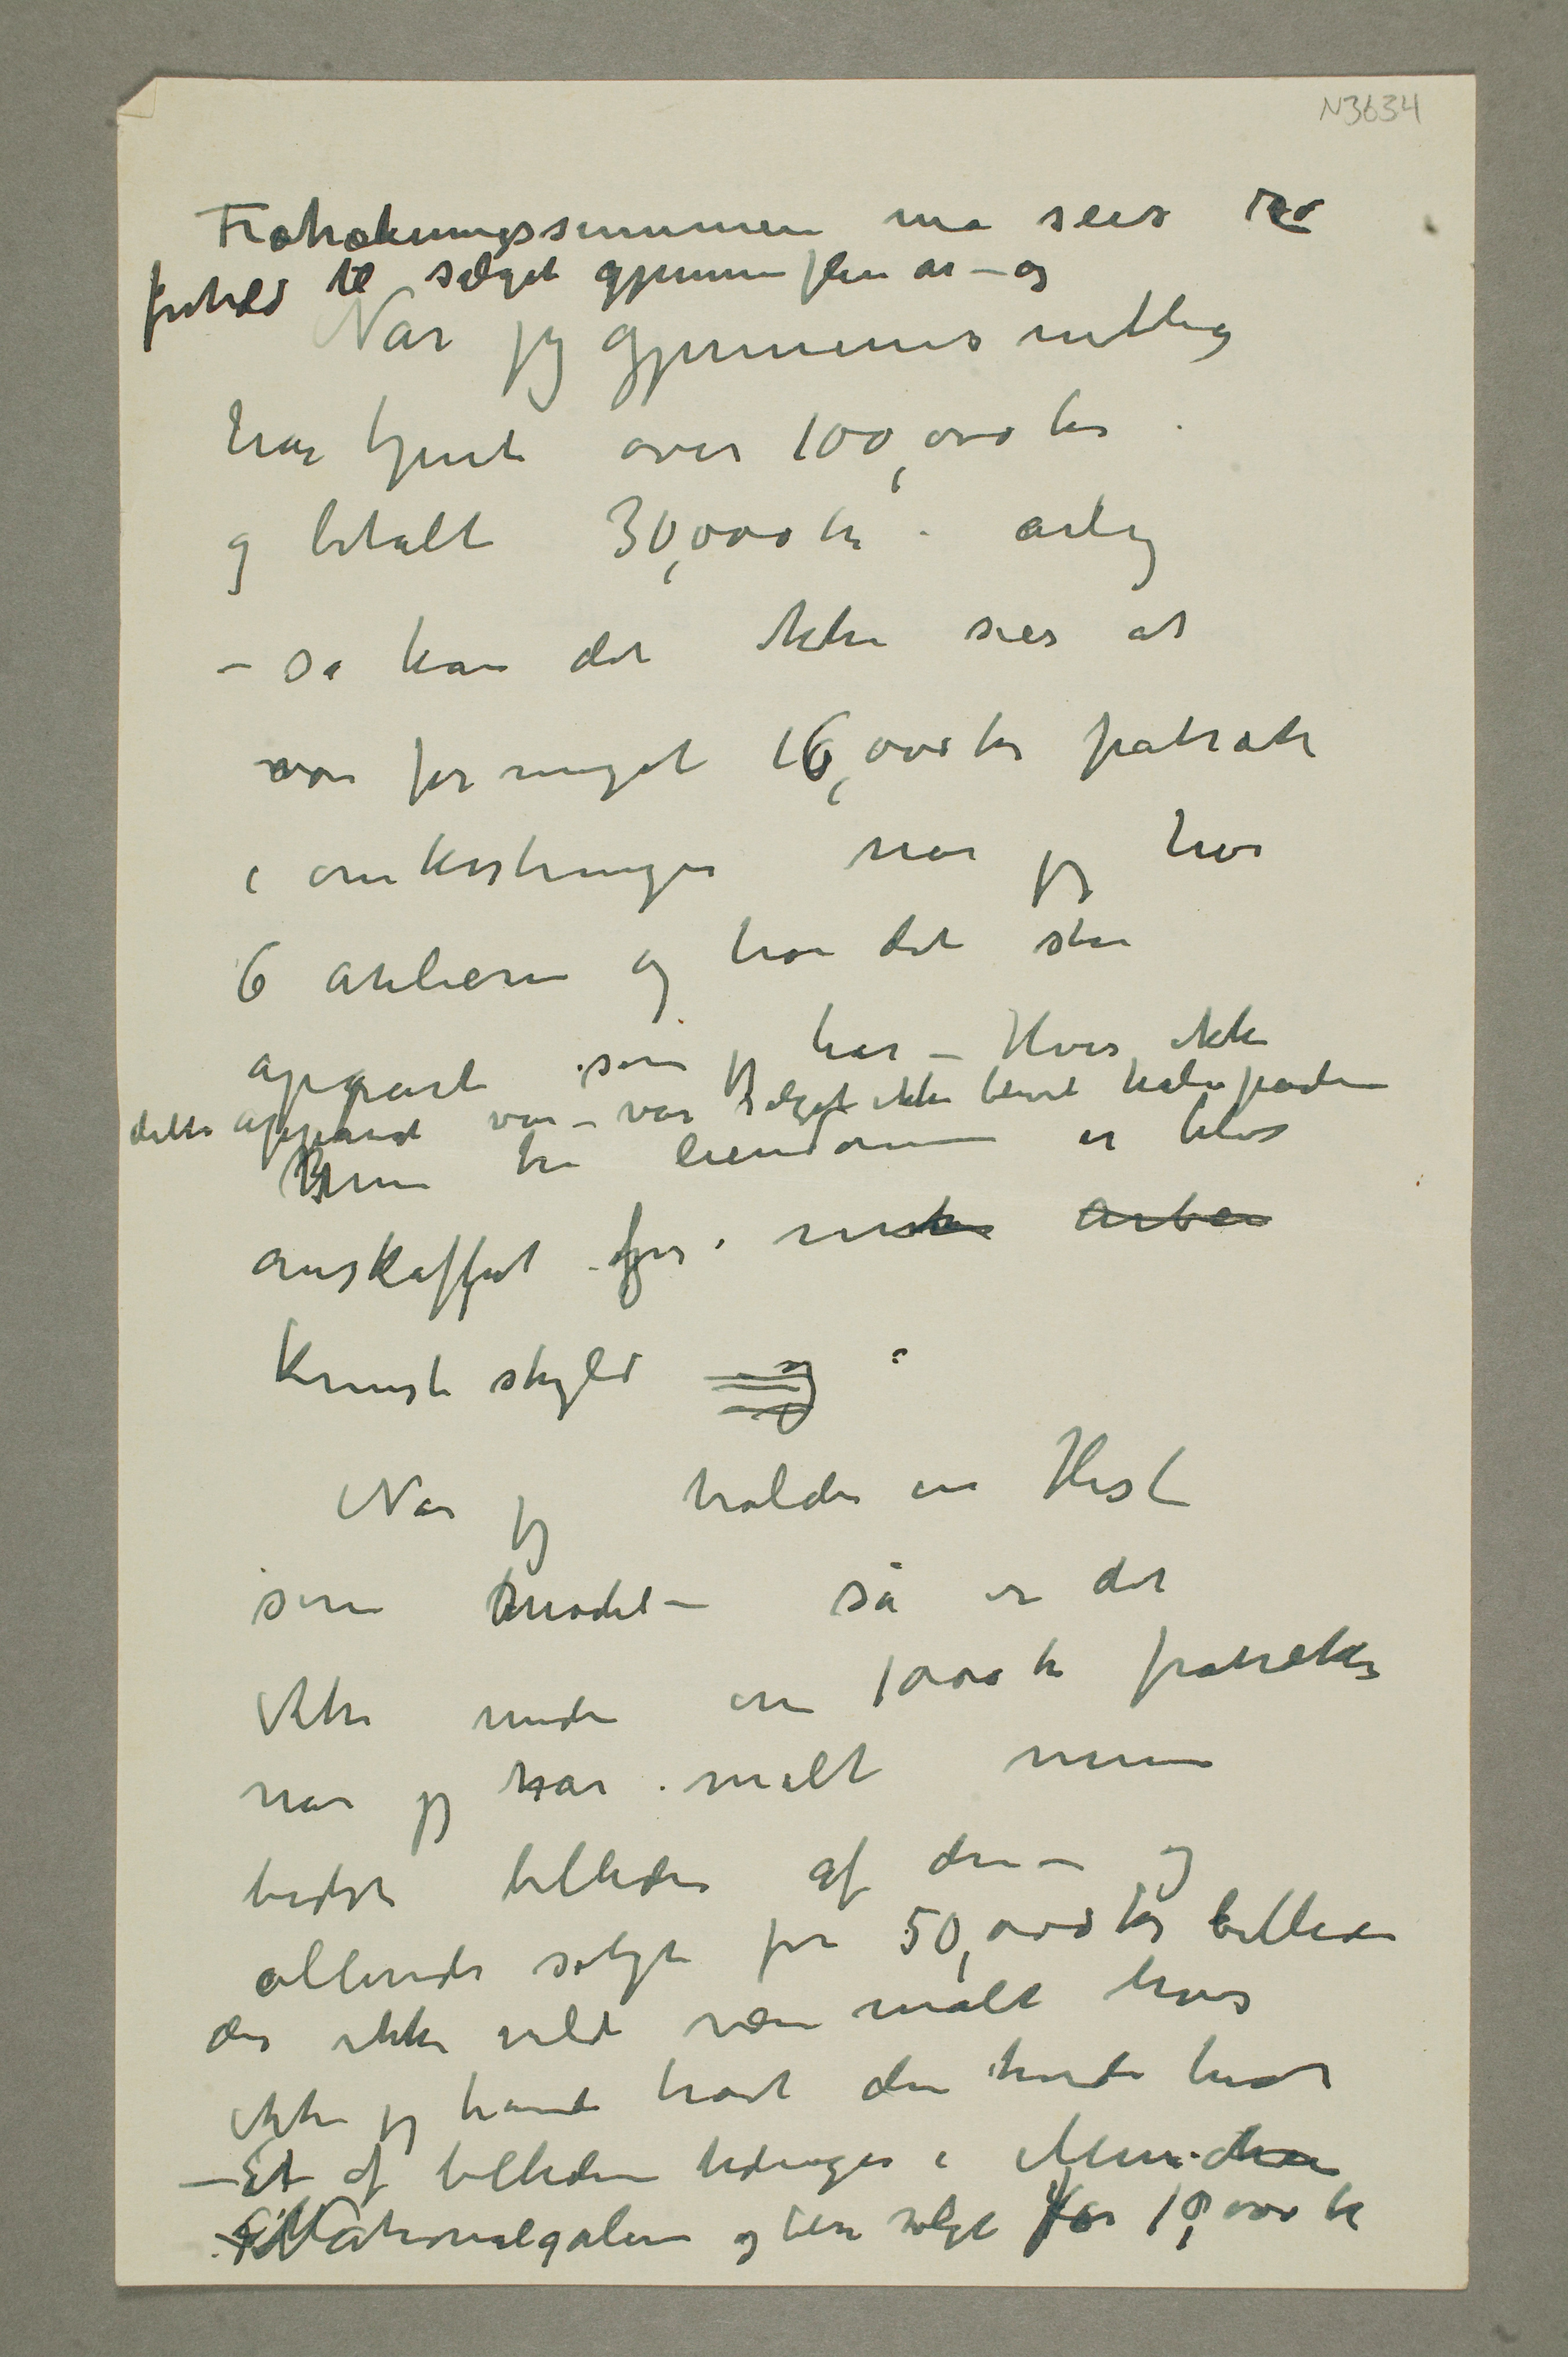 N3634
Fratrækningssummen må sees i
forhold til salget gjennem flere år – og
Når jeg gjennemsnittlig
har tjent over 100,000 kr.
og betalt 30,000 kr. årlig
– så kan det ikke sies at
være for meget 16,000 kr fratrat
i omkostninger når jeg har
6 atelierer og har det store
apparat som jeg har – Hvis ikke
dette apparat var – var salget ikke blevet halvparten
Mine tre eiendomme er blot
anskaffet for min arbei
kunsts skyld og
Når jeg holder en Hest
som model – så er det
ikke under en 1000 kr fratræk
når jeg har malt mine
bedste billeder af den – og
allerede solgt for 50,000 kr billeder
der ikke vilde være malt hvis
ikke jeg havde havt denne hest
– Et af billederne hænger i München
Nationalgaleri og blev solgt for 10,000 kr